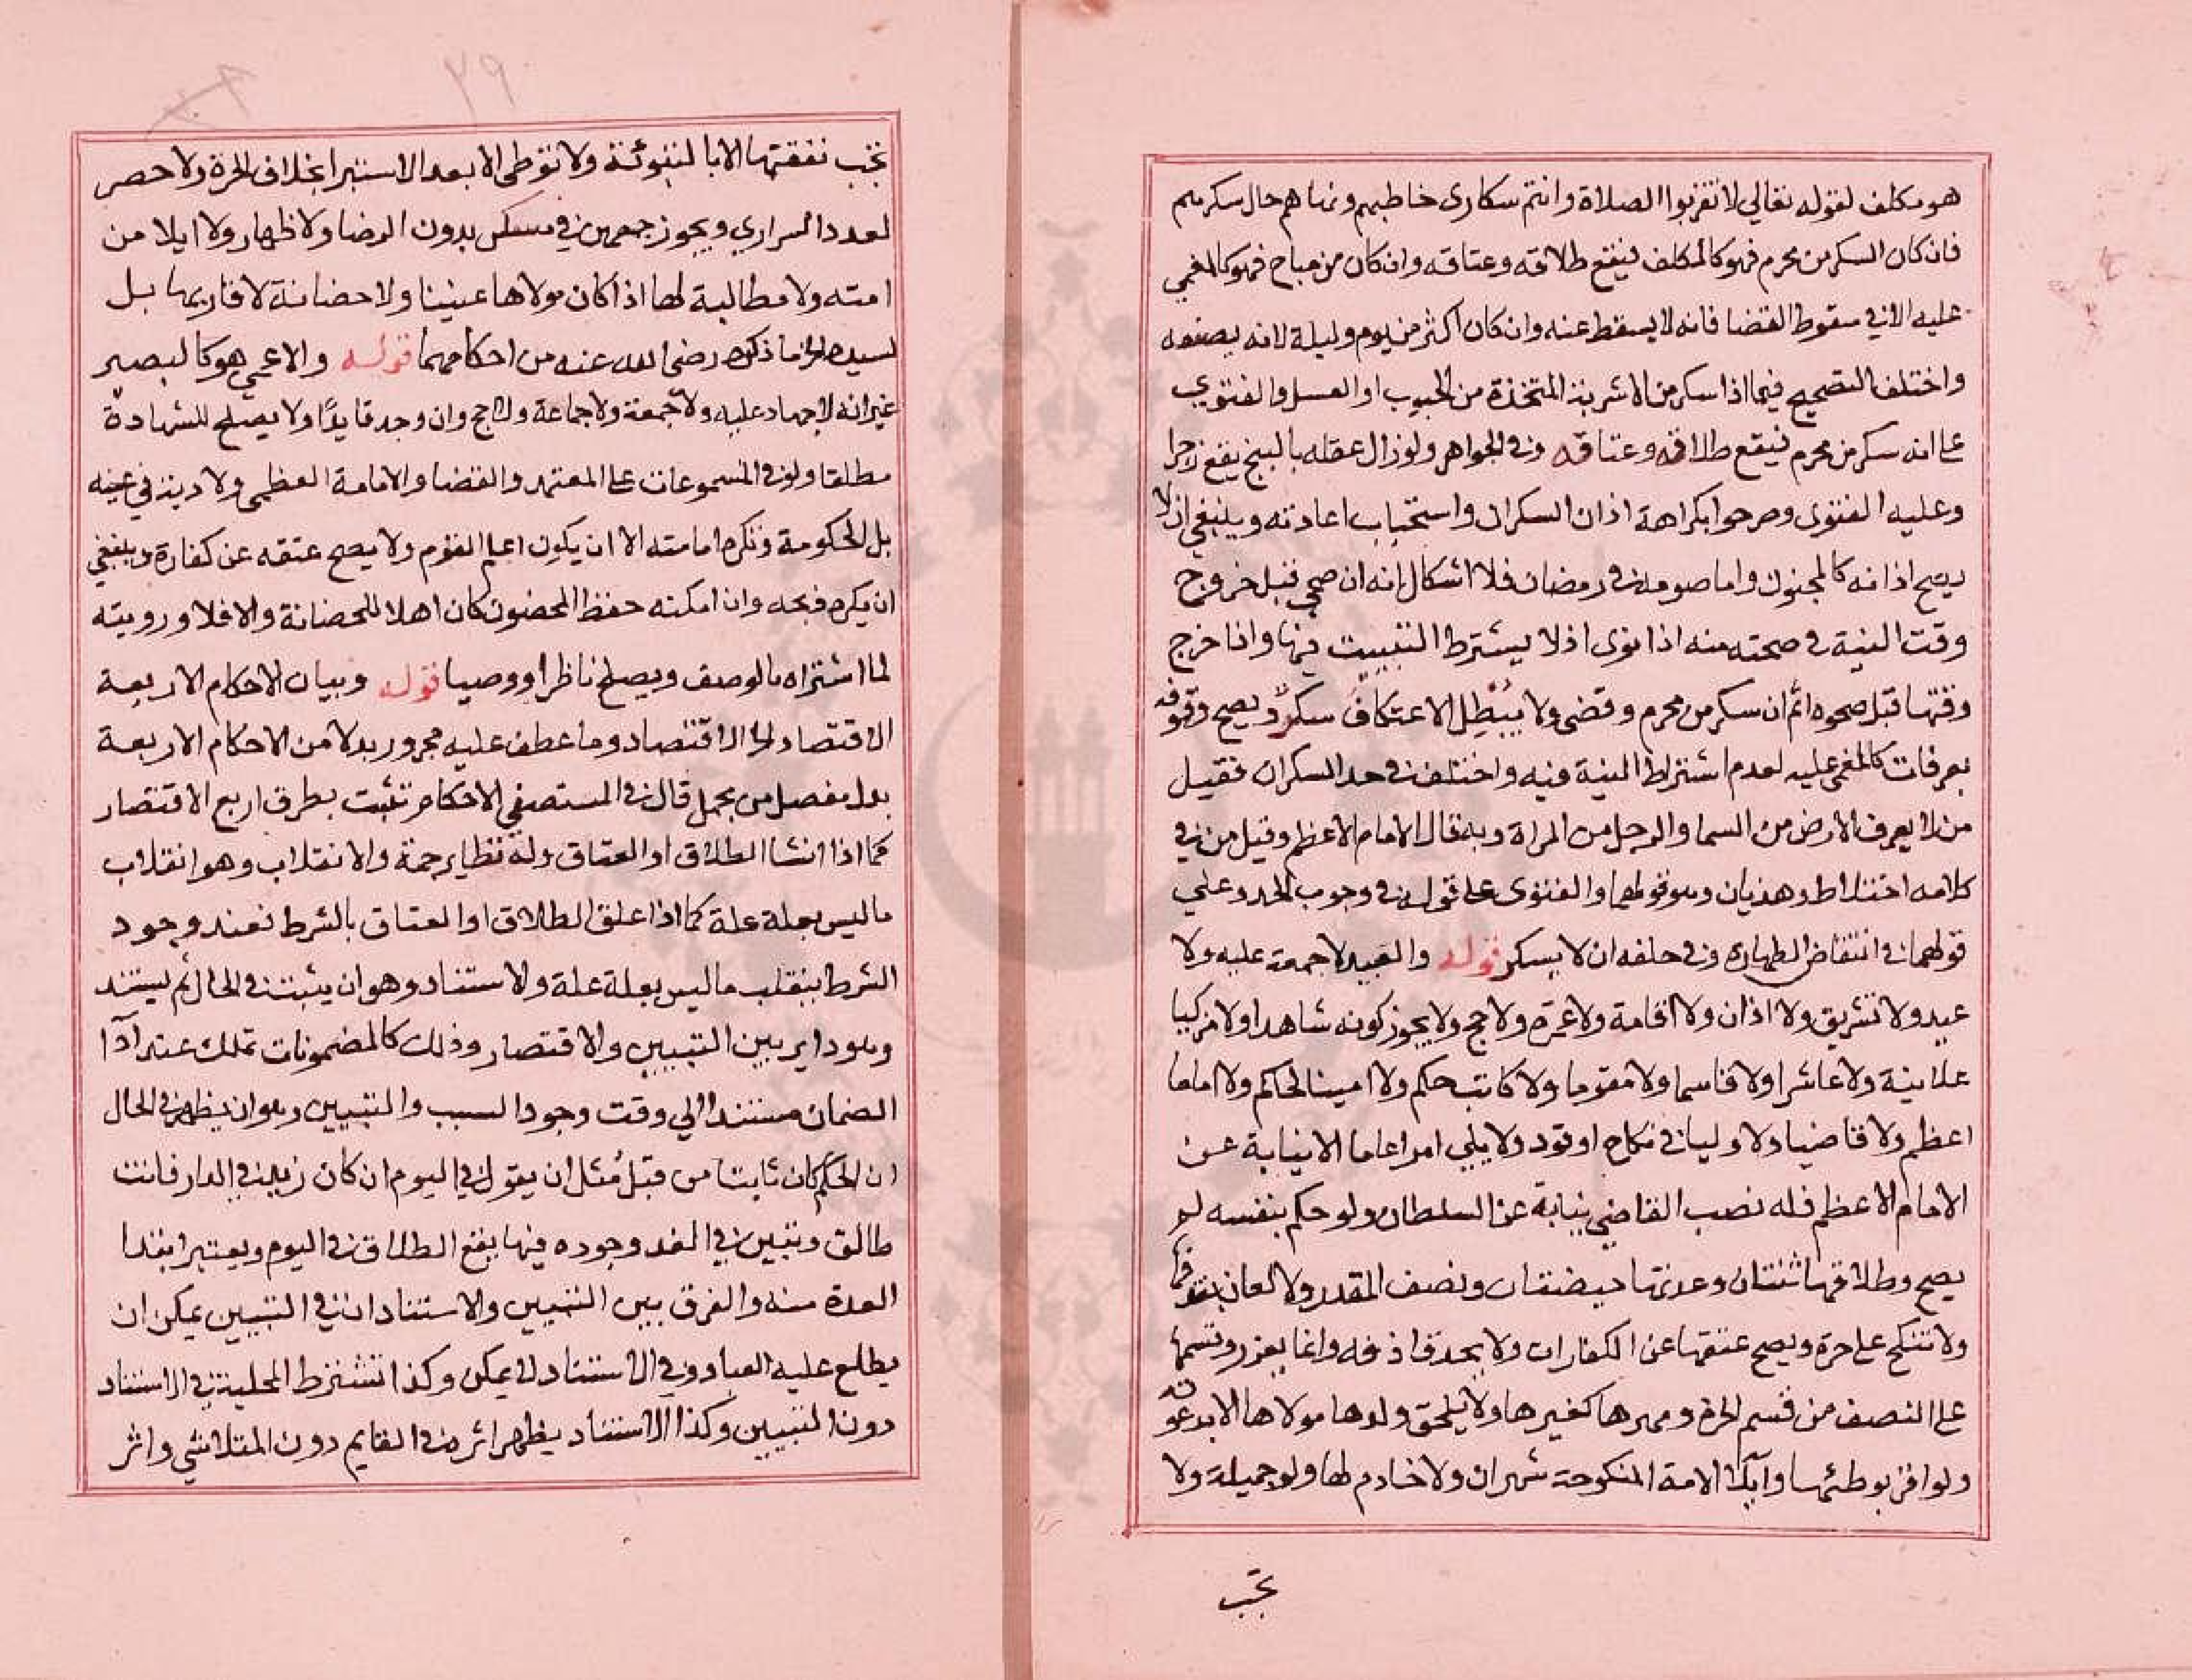 هو مكلف لقوله تعالي لا تقربوا الصلاة وانتم سكارى خاطبهم ونهاهم حال سكرهم
فان كان السكر من محرم فهو كالمكلف فيقع طلاقه وعتاقه وان كان من مباح فهو كالمغمي
عليه الا في سقوط القضا فانه لا يسقط عنه وان كان اكثر من يوم وليلة لانه بصنعه
واختلف التصحيح فيما اذا سكر من الاشربة المتخذة من الحبوب او العسل والفتوي
علي انه سكر من محرم فيقع طلاقه وعتاقه وفي الجواهر ولو زال عقله بالبنج يقع زجرا
وعليه الفتوى وصرحوا بكراهة اذان السكران واستحباب اعادته وينبغي ان لا
يصح اذانه كالمجنون واما صومه في رمضان فلا اشكال انه ان صحي قبل خروج
وقت النية في صحته منه اذا نوى اذ لا يشترط التبييت فيها واذا خرج
وقتها قبل صحوه اثم ان سكر من محرم وقضى ولا يبطل الاعتكاف سكر ويصح وقوفه
بعرفات كالمغمي عليه لعدم اشتراط النية فيه واختلف في حد السكران فقيل
من لا يعرف الارض من السما والرجل من المراة وبه قال الامام الاعظم وقيل من في
كلامه اختلاط وهذيان وهو قولهما والفتوى علي قوله في وجوب الحد وعلي
قولهما في انتقاض الطهارة وفي حلفه ان لا يسكر قوله والعبيد لا جمعة عليه ولا
عيد ولا تشريق ولا اذان ولا اقامة ولا عمرة ولا حج ولا يجوز كونه شاهدا ولا مزكيا
علانية ولا عاشرا ولا قاسما ولا مقوما ولا كاتب حكم ولا امينا لحاكم ولا اماما
اعظم ولا قاضيا ولا وليا في نكاح او قود ولا يلي امرا عاما الا نيابة عن
الامام الاعظم فله نصب القاضي نيابة عن السلطان ولو حكم بنفسه لم
يصح وطلاقها ثنتان وعدتها حيضتان ونصف المقدر ولا لعان بقذفها
ولا تنكح علي حرة ويصح عتقها عن الكفارات ولا يحد قاذفه وانما يعزر وقسمها
علي النصف من قسم الحرة ومهرها كغيرها ولا يلحق ولدها مولاها الا بدعوته
ولو اقر بوطئها وايلا الامة المنكوحة شهران ولا خادم لها ولو جميلة ولا
تجب
تجب نفقتها الا بالتبوئة ولا توطى الا بعد الاستبرا بخلاف الحرة ولا حصر
لعدد السراري ويجوز جمعهن في مسكن بدون الرضا ولا ظهار ولا ايلا من
امته ولا مطالبة لها اذا كان مولاها عنينا ولا حضانة لاقاربها بل
لسيدها الى ما ذكره رضي الله عنه من احكامهما قوله والاعمي هو كالبصير
غير انه لا جهاد عليه ولا جمعة ولا جماعة ولا حج وان وجد قايدًا ولا يصلح للشهادة
مطلقا ولو في المسموعات علي المعتمد والقضا والامامة العظمي ولا دية في عينه
بل الحكومة وتكره امامته الا ان يكون اعلم القوم ولا يصح عتقه عن كفارة وينبغي
ان يكره ذبحه وان امكنه حفظ المحضون كان اهلا للحضانة والا فلا ورويته
لما اشتراه بالوصف ويصلح ناظرا ووصيا قوله وبيان الاحكام الاربعة
الاقتصاد الى الاقتصاد وما عطف عليه مجرور بدلا من الاحكام الاربعة
بدل مفصل من مجمل قال في المستصفي الاحكام تثبت بطرق اربع الاقتصار
كما اذا انشا الطلاق او العتاق وله نظاير جمة والانقلاب وهو انقلاب
ما ليس بعلة علة كما اذا علق الطلاق او العتاق بالشرط فعند وجود
الشرط ينقلب ما ليس بعلة علة والاستناد وهو ان يثبت في الحال ثم يستند
وهو داير بين التبيين والاقتصار وذلك كالمضمونات تملك عند ادا
الضمان مستندا الي وقت وجود السبب والتبيين وهو ان يظهر في الحال
ان الحكم كان ثابتا من قبل مثل ان يقول في اليوم ان كان زيد في الدار فانت
طالق وتبين في الغد وجوده فيها يقع الطلاق في اليوم ويعتبر ابتدا
العدة منه والفرق بين التبيين والاستناد ان في التبيين يمكن ان
يطلع عليه العباد وفي الاستناد لا يمكن وكذا تشترط المحلية في الاستناد
دون التبيين وكذا الاستناد يظهر اثره في القايم دون المتلاشي واثر